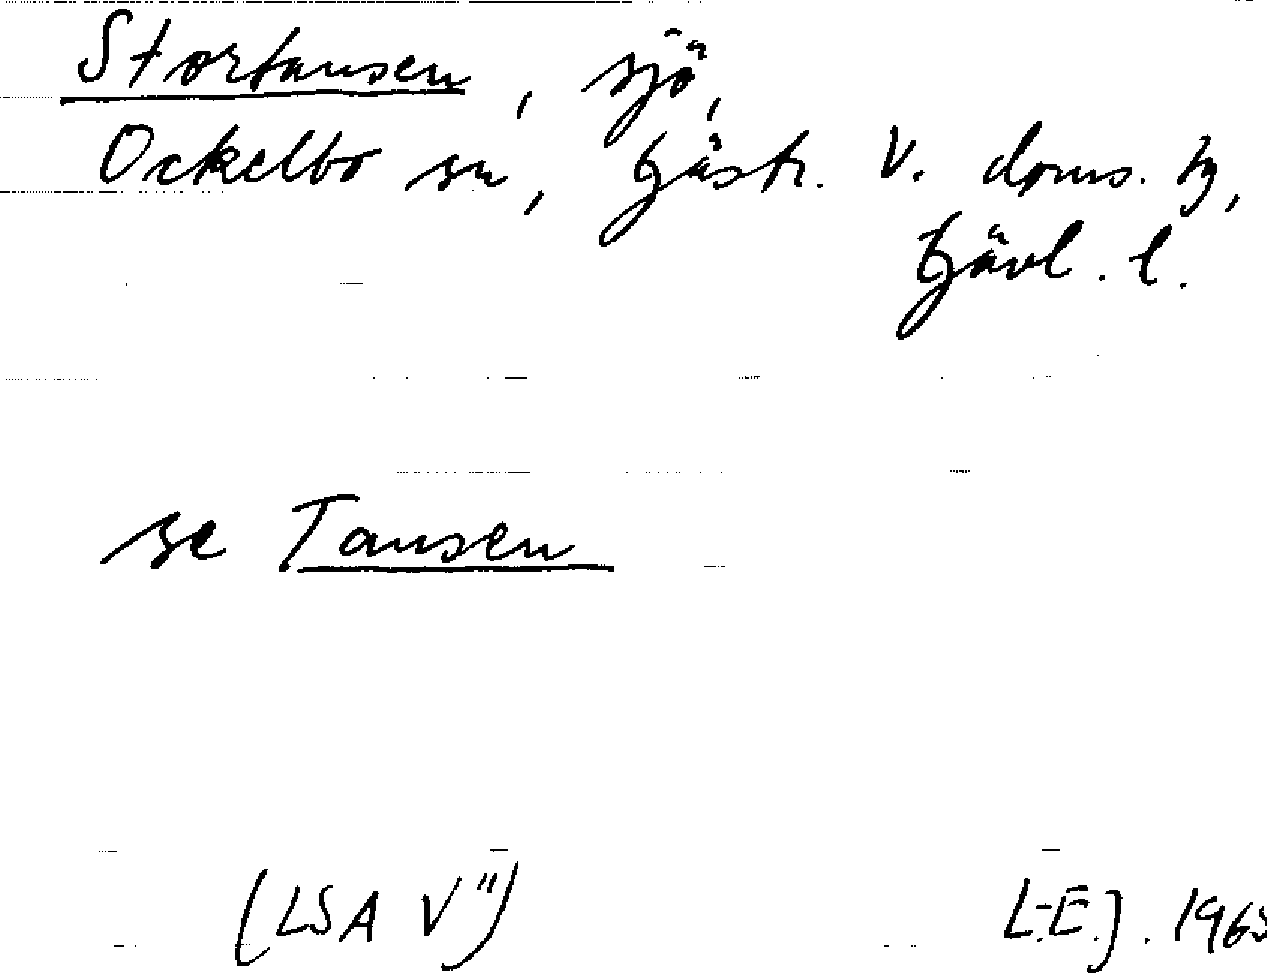 Stortansen, sjö,
Ockelbo sn, Gästr. V. doms. tg,
Gävl. l.
se Tansen
(LSA V") L.-E.J. 1963